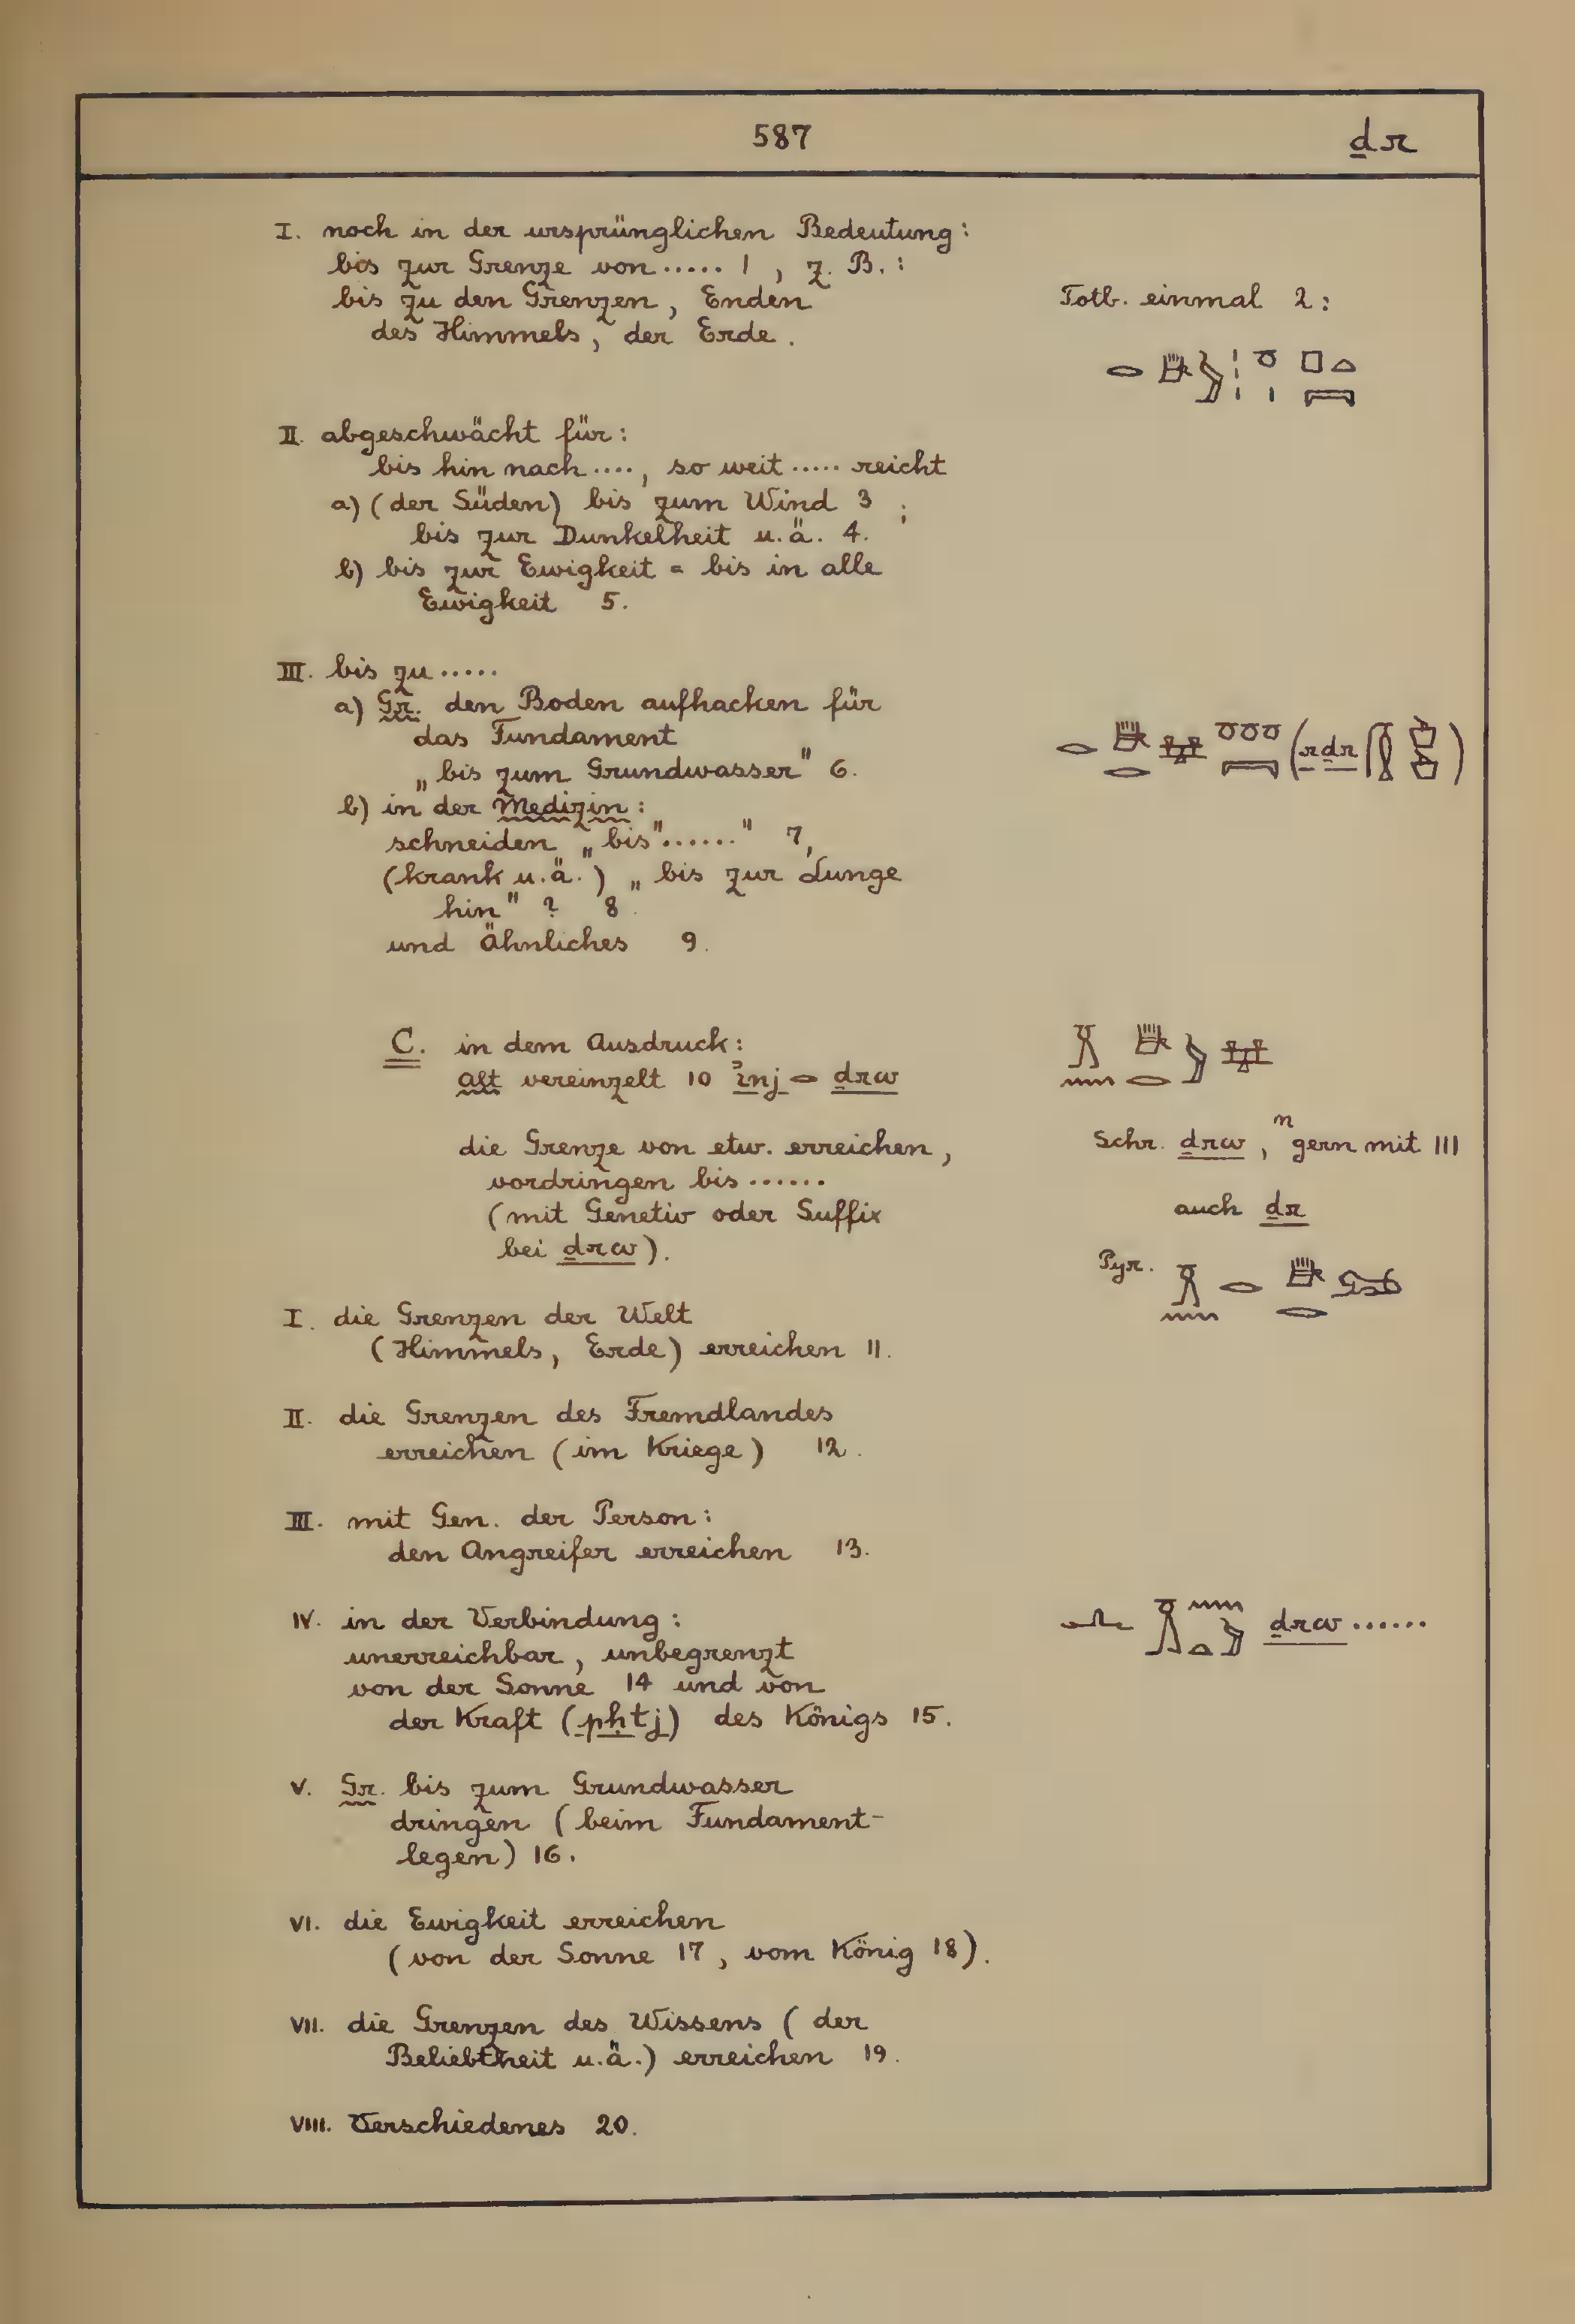 587
ḏr
I. noch in der ursprünglichen Bedeutung:
bis zur Grenze von ..... 1 , z. B. :
bis zu den Grenzen, Enden
des Himmels, der Erde.
Totb. einmal 2:
II. abgeschwächt für:
bis hin nach ...., so weit ..... reicht
a) (der Süden) bis zum Wind 3 ;
bis zur Dunkelheit u.ä. 4.
b) bis zur Ewigkeit = bis in alle
Ewigkeit 5.
III. bis zu .....
a) Gr. den Boden aufhacken für
das Fundament
„bis zum Grundwasser" 6.
b) in der Medizin:
schneiden „bis"......" 7,
(krank u.ä.) „bis zur Lunge
hin" ? 8.
und Ähnliches 9.
C. in dem Ausdruck:
alt vereinzelt 10 ỉnj 𓂋 ḏrw
die Grenze von etw. erreichen,
vordringen bis ......
(mit Genetiv oder Suffix
bei ḏrw).
Schr. ḏrw, n gern mit III
auch ḏr
Pyr.
I. die Grenzen der Welt
(Himmels, Erde) erreichen 11.
II. die Grenzen des Fremdlandes
erreichen (im Kriege) 12.
III. mit Gen. der Person:
den Angreifer erreichen 13.
IV. in der Verbindung:
unerreichbar, unbegrenzt
von der Sonne 14 und von
der Kraft (pḥtj) des Königs 15.
ḏrw ......
V. Gr. bis zum Grundwasser
dringen (beim Fundament-
legen) 16.
VI. die Ewigkeit erreichen
(von der Sonne 17, vom König 18).
VII. die Grenzen des Wissens (der
Beliebtheit u.ä.) erreichen 19.
VIII. Verschiedenes 20.